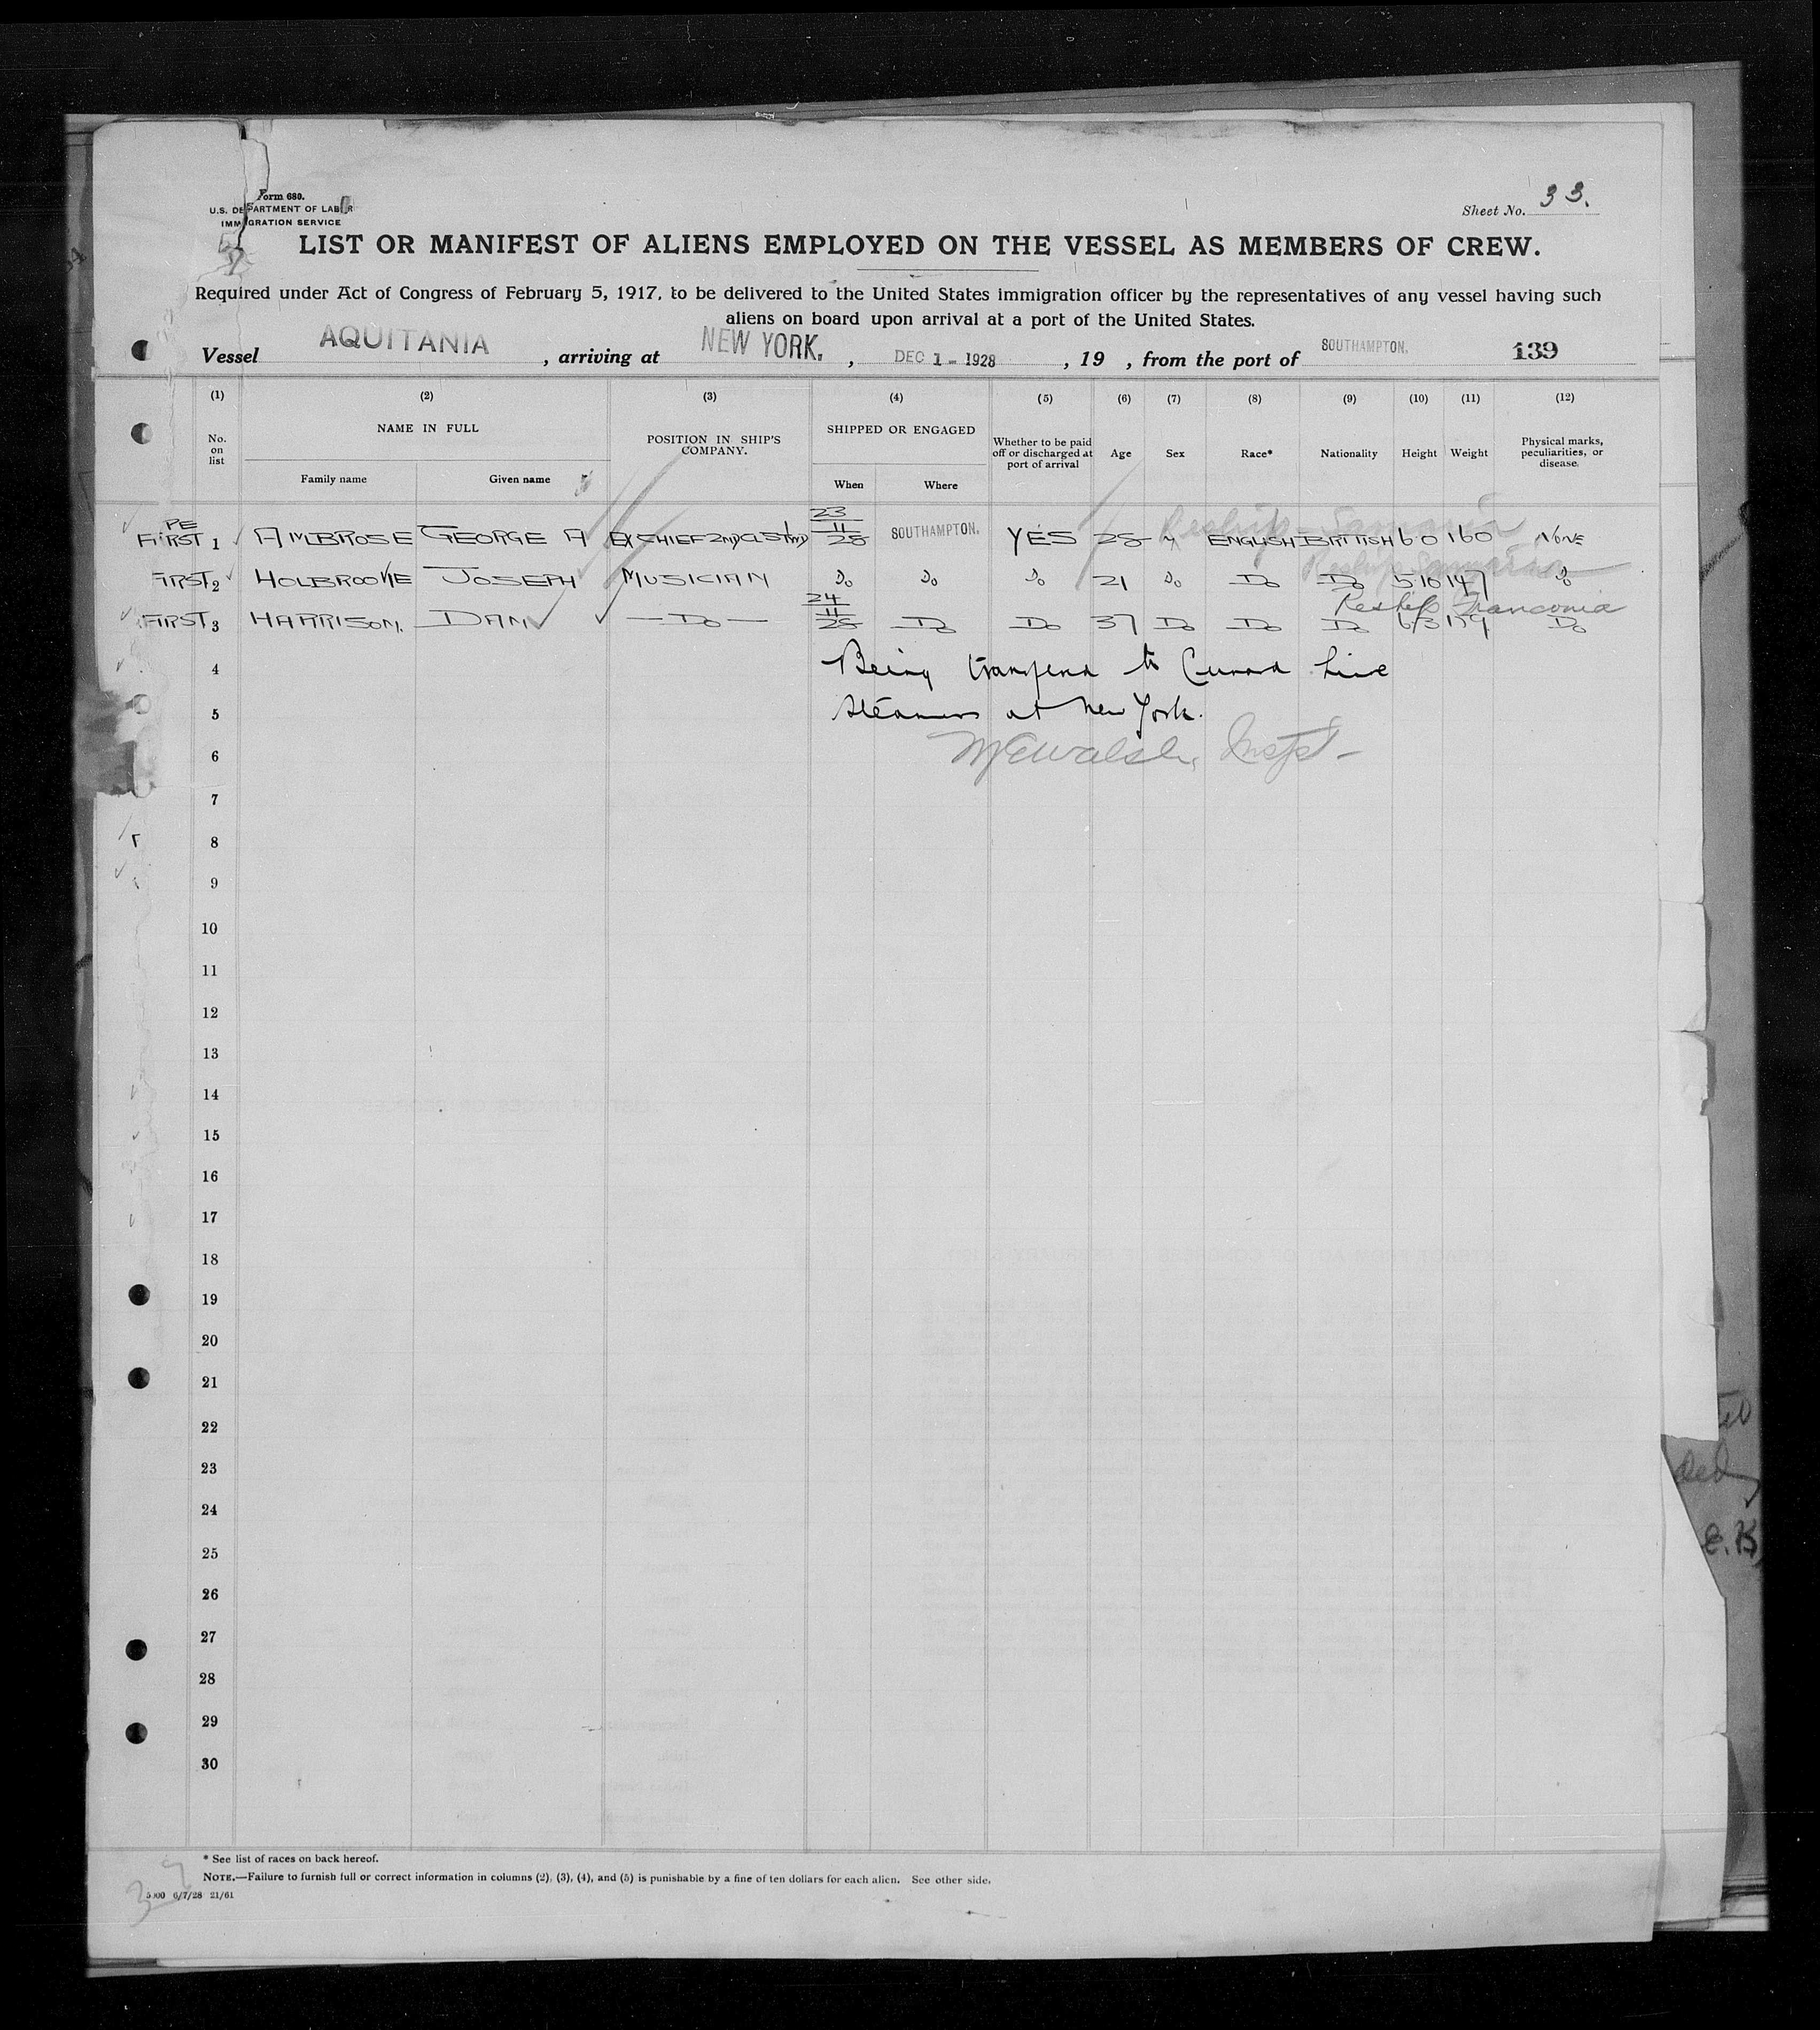 Form 680.
U.S. DEPARTMENT OF LABOR
IMMIGRATION SERVICE
Sheet No. 33.
LIST OR MANIFEST OF ALIENS EMPLOYED ON THE VESSEL AS MEMBERS OF CREW.
Required under Act of Congress of February 5, 1917, to be delivered to the United States immigration officer by the representatives of any vessel having such
aliens on board upon arrival at a port of the United States.
Vessel AQUITANIA, arriving at NEW YORK., DEC 1 - 1928, 19 , from the port of SOUTHAMPTON. 139
(1) (2) (3) (4) (5) (6) (7) (8) (9) (10) (11) (12)
No. on list NAME IN FULL POSITION IN SHIP'S COMPANY. SHIPPED OR ENGAGED Whether to be paid off or discharged at port of arrival Age Sex Race* Nationality Height Weight Physical marks, peculiarities, or disease.
Family name Given name When Where
Reship - Samaria
PE FIRST 1 AMBROSE GEORGE A EX CHIEF 2ND CL STWD 23/11/28 SOUTHAMPTON. YES 28 ENGLISH BRITISH 6 0 160 NONE
Reship Samaria
FIRST 2 JOSEPH MUSICIAN Do Do Do 21 Do Do Do 5 10 147 Do
Reship Franconia
FIRST 3 HARRISON. DAN — Do — 24/11/28 Do Do 37 Do Do Do 179 Do
4 Being to Cunard Line
5 Steamers at New York.
6 Walsh, Inspt-
7
8
9
10
11
12
13
14
15
16
17
18
19
20
21
22
23
24
25
26
27
28
29
30
* See list of races on back hereof.
NOTE.—Failure to furnish full or correct information in columns (2), (3), (4), and (5) is punishable by a fine of ten dollars for each alien. See other side.
6/7/28 21/61